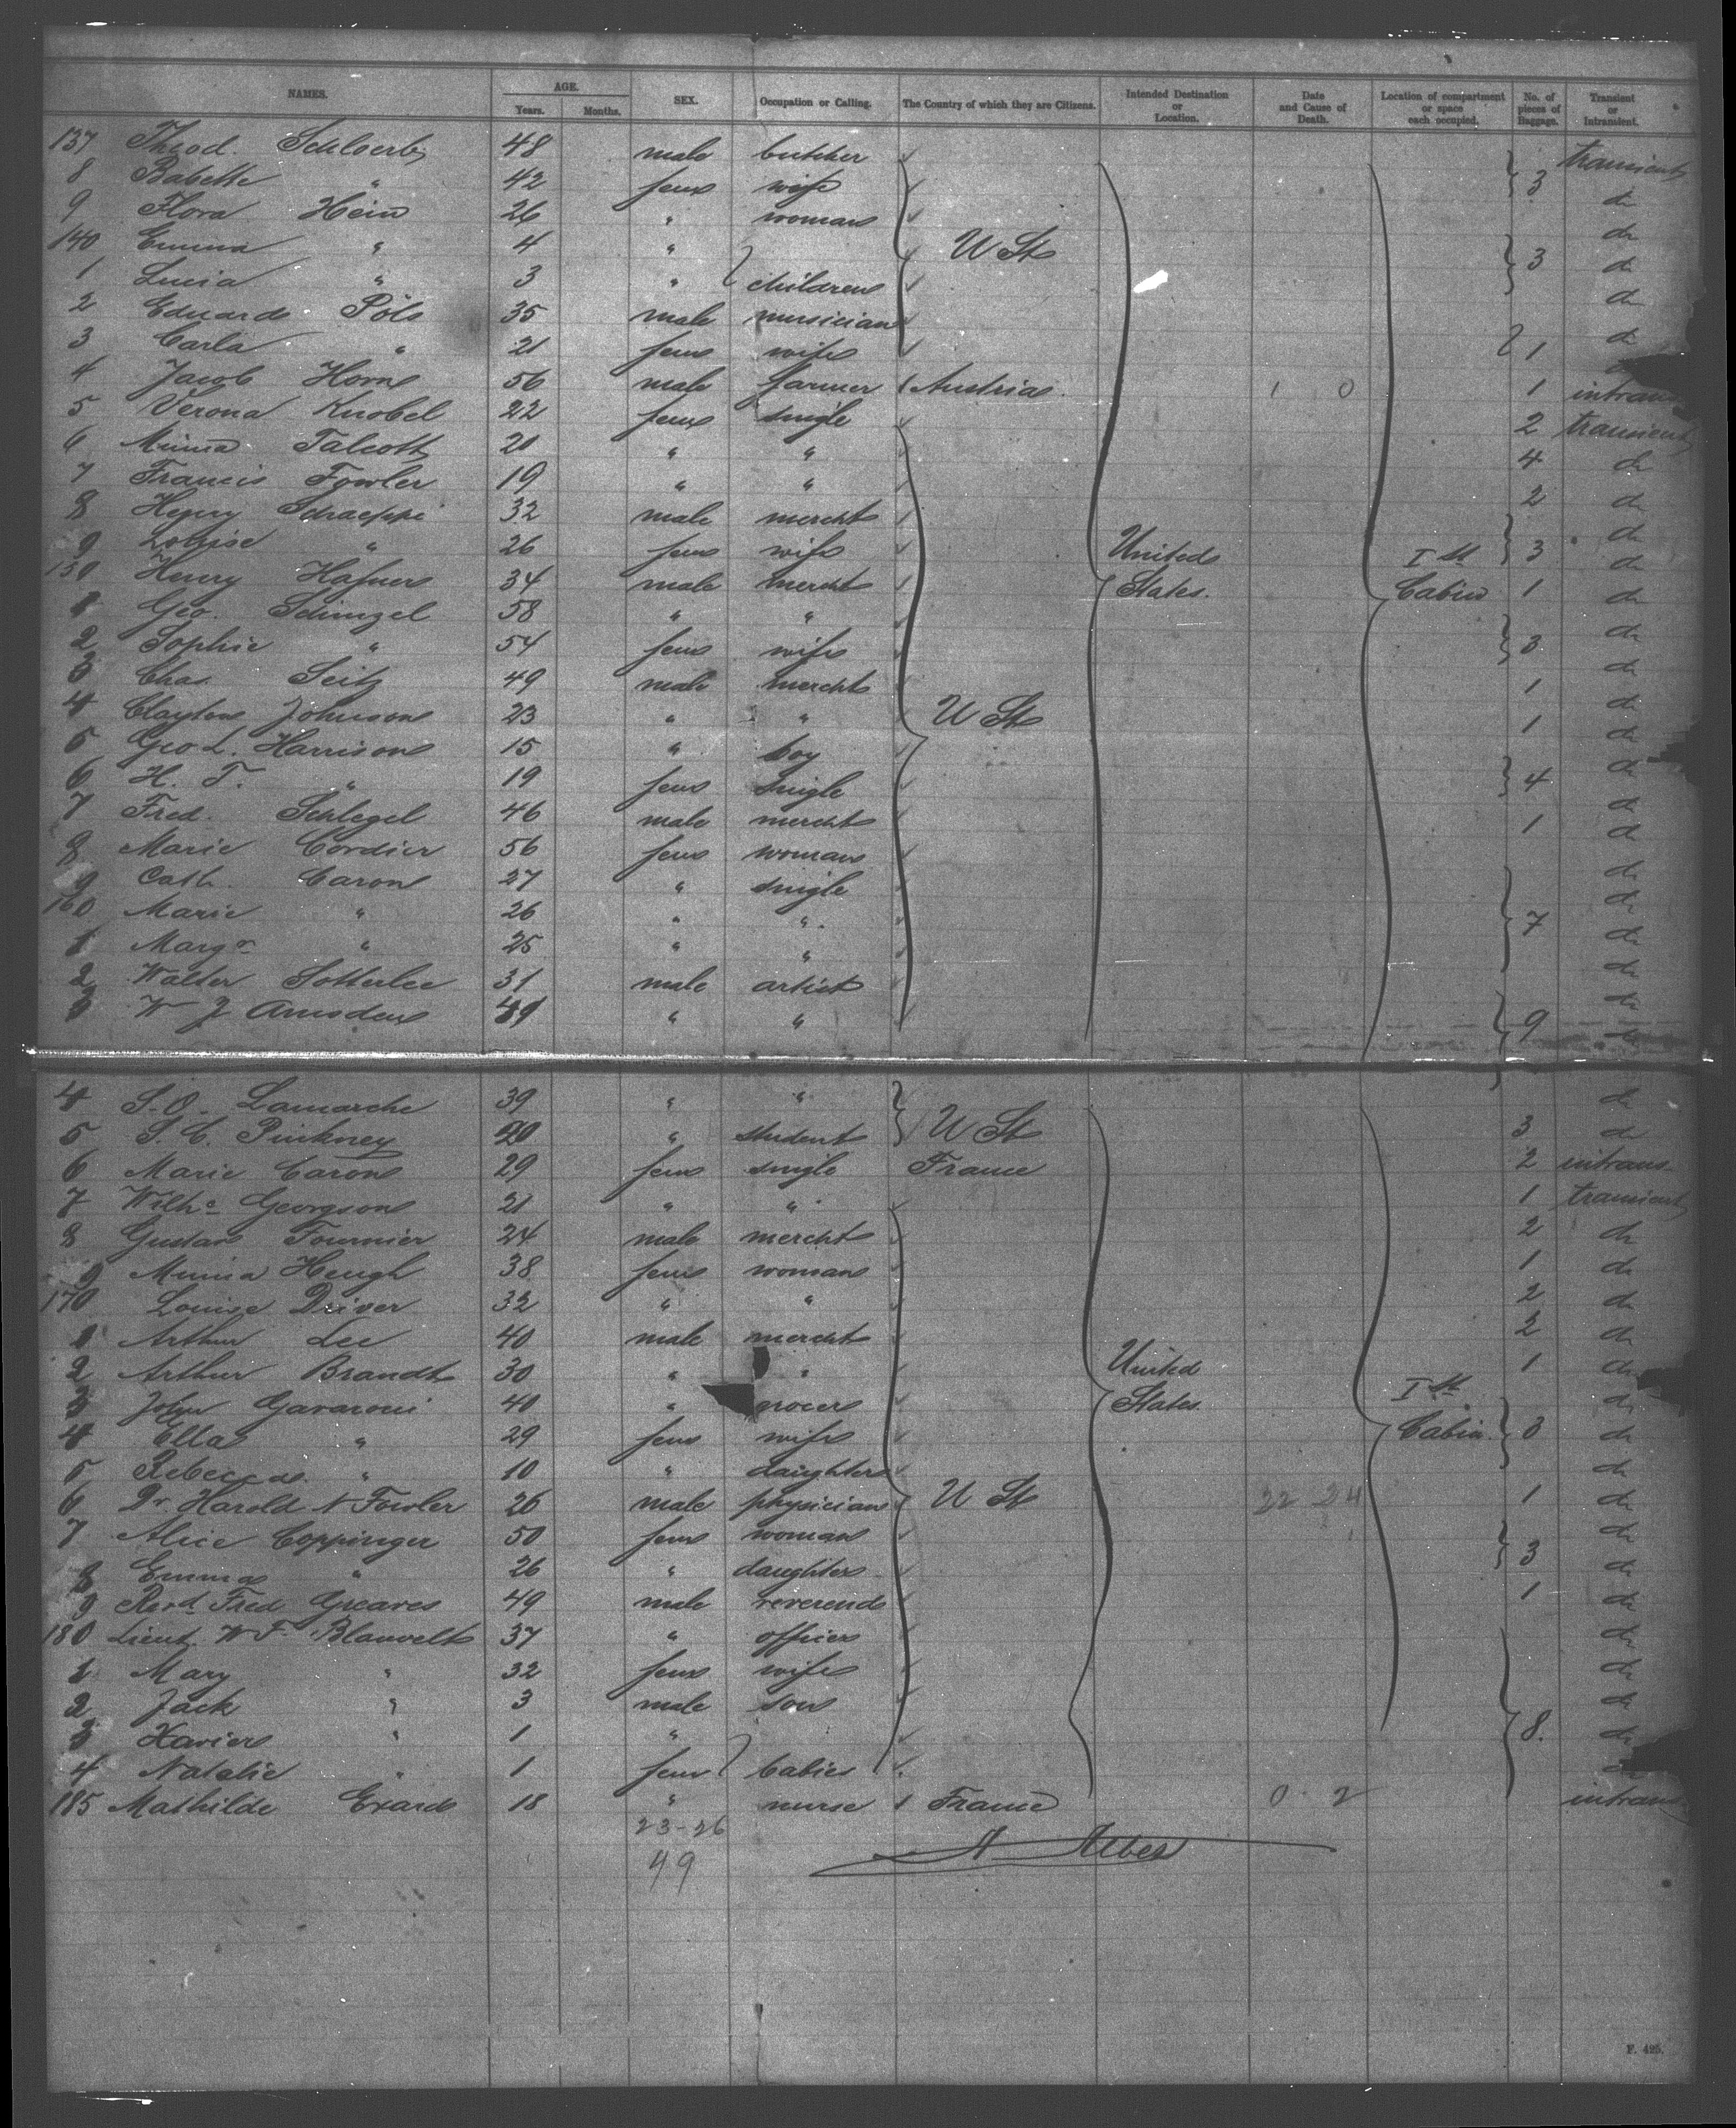 NAMES. AGE. Years. Months. SEX. Occupation or Calling. The Country of which they are Citizens. Intended Destination or Location. Date and Cause of Death. Location of compartment or space each occupied. No. of pieces of Baggage. Transient or Intransient.
137 Theod. 48 male butcher transient
8 Babette " 42 fem wife 3 do
9 Flora Hein 26 " woman do
140 Emma " 4 " U St 3 do
1 Lucia " 3 " children do
2 Eduard Pols 35 male musician do
3 Carla " 21 fem wife 1 do
4 Jacob Horn 56 male farmer 1 Austria 1 0 1 intrans
5 Verona Knobel 22 fem single 2 transient
6 Minna Talcott 20 " " 4 do
7 Francis Fowler 19 " " 2 do
8 Henry Schaeppi 32 male mercht do
9 Louise " 26 fem wife United Ist 3 do
150 Henry Hafner 34 male mercht States. Cabin 1 do
1 Geo. Schinzel 58 " " do
2 Sophie " 54 fem wife 3 do
3 Chas. Seitz 49 male mercht 1 do
4 Clayton Johnson 23 " " U St 1 do
5 Geo L. Harrison 15 " boy do
6 H. T. " 19 fem single 4 do
7 Fred. Schlegel 46 male mercht 1 do
8 Marie Cordier 56 fem woman do
9 Cath. Caron 27 " single do
160 Marie " 26 " " 7 do
1 Margr " 25 " " do
2 Walter Satterlee 31 male artist do
3 W J Amsden 49 " " 9 do
4 S. O. Lamarche 39 " " do
5 S. C. Pinkney 20 " student U St 3 do
6 Marie Caron 29 fem single France 2 intrans
7 Wilhe Georgson 21 " " 1 transient
8 Gustav Fournier 24 male mercht 2 do
9 Minna Heugh 38 fem woman 1 do
170 Louise Driver 32 " " 2 do
1 Arthur Lee 40 male mercht 2 do
2 Arthur Brandt 30 " " United 1 do
3 John Gavaroni 40 " grocer States. Ist do
4 Ella " 29 fem wife Cabin 3 do
5 Rebecca " 10 " daughter do
6 Dr Harold N Fowler 26 male physician U St 22 24 1 do
7 Alice Coppinger 50 fem woman do
8 Emma " 26 " daughter 3 do
9 Revd Fred Greaves 49 male reverend 1 do
180 Lieut. W F. Blauvelt 37 " officer do
1 Mary " 32 fem wife do
2 Jack " 3 male son do
3 Xavier " 1 " 8. do
4 Natalie " 1 fem babies do
185 Mathilde 18 " nurse 1 France 0 2 intrans
23-26
49
A Albers
F. 425.